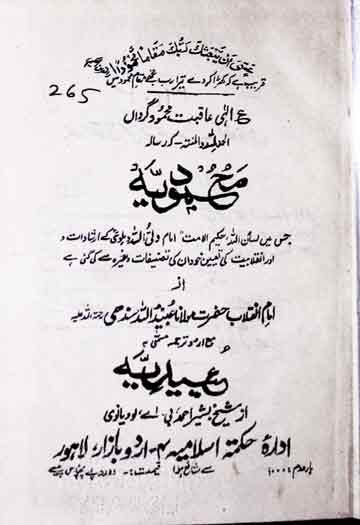 عَسٰى اَنْ يَّبْعَثَكَ رَبُّكَ مَقَامًا مَّحْمُوْدًا
قریب ہے کہ کھڑا کر دے تیرا رب تجھے مقام محمود میں
265
ع۔ الٰہی عاقبت محمود گرداں
الحمد للہ والمنۃ۔ کہ رسالہ
محمودیہ
جس میں لسان اللہ حکیم الامت امام ولی اللہ دہلوی کے ارشادات
اور انقلابیت کی تعیین خود ان کی تصنیفات وغیرہ سے کی گئی ہے
از
امام انقلاب حضرت مولانا عبید اللہ سندھی رحمۃ اللہ علیہ
کا اردو ترجمہ مسمّٰی بہ
عبیدیہ
از شیخ بشیر احمد بی۔ اے لودیانوی
ادارۂ حکمتِ اسلامیہ ۴۔ اردو بازار لاہور
بار دوم ۱۰۰۰ سے شائع ہوا قیمت:۔ دو روپے پچاس پیسے